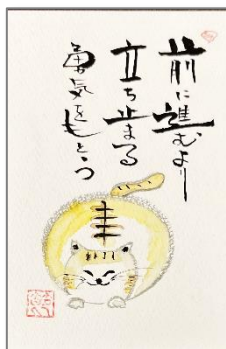 前に進むより
立ち止まる
勇気をもとう